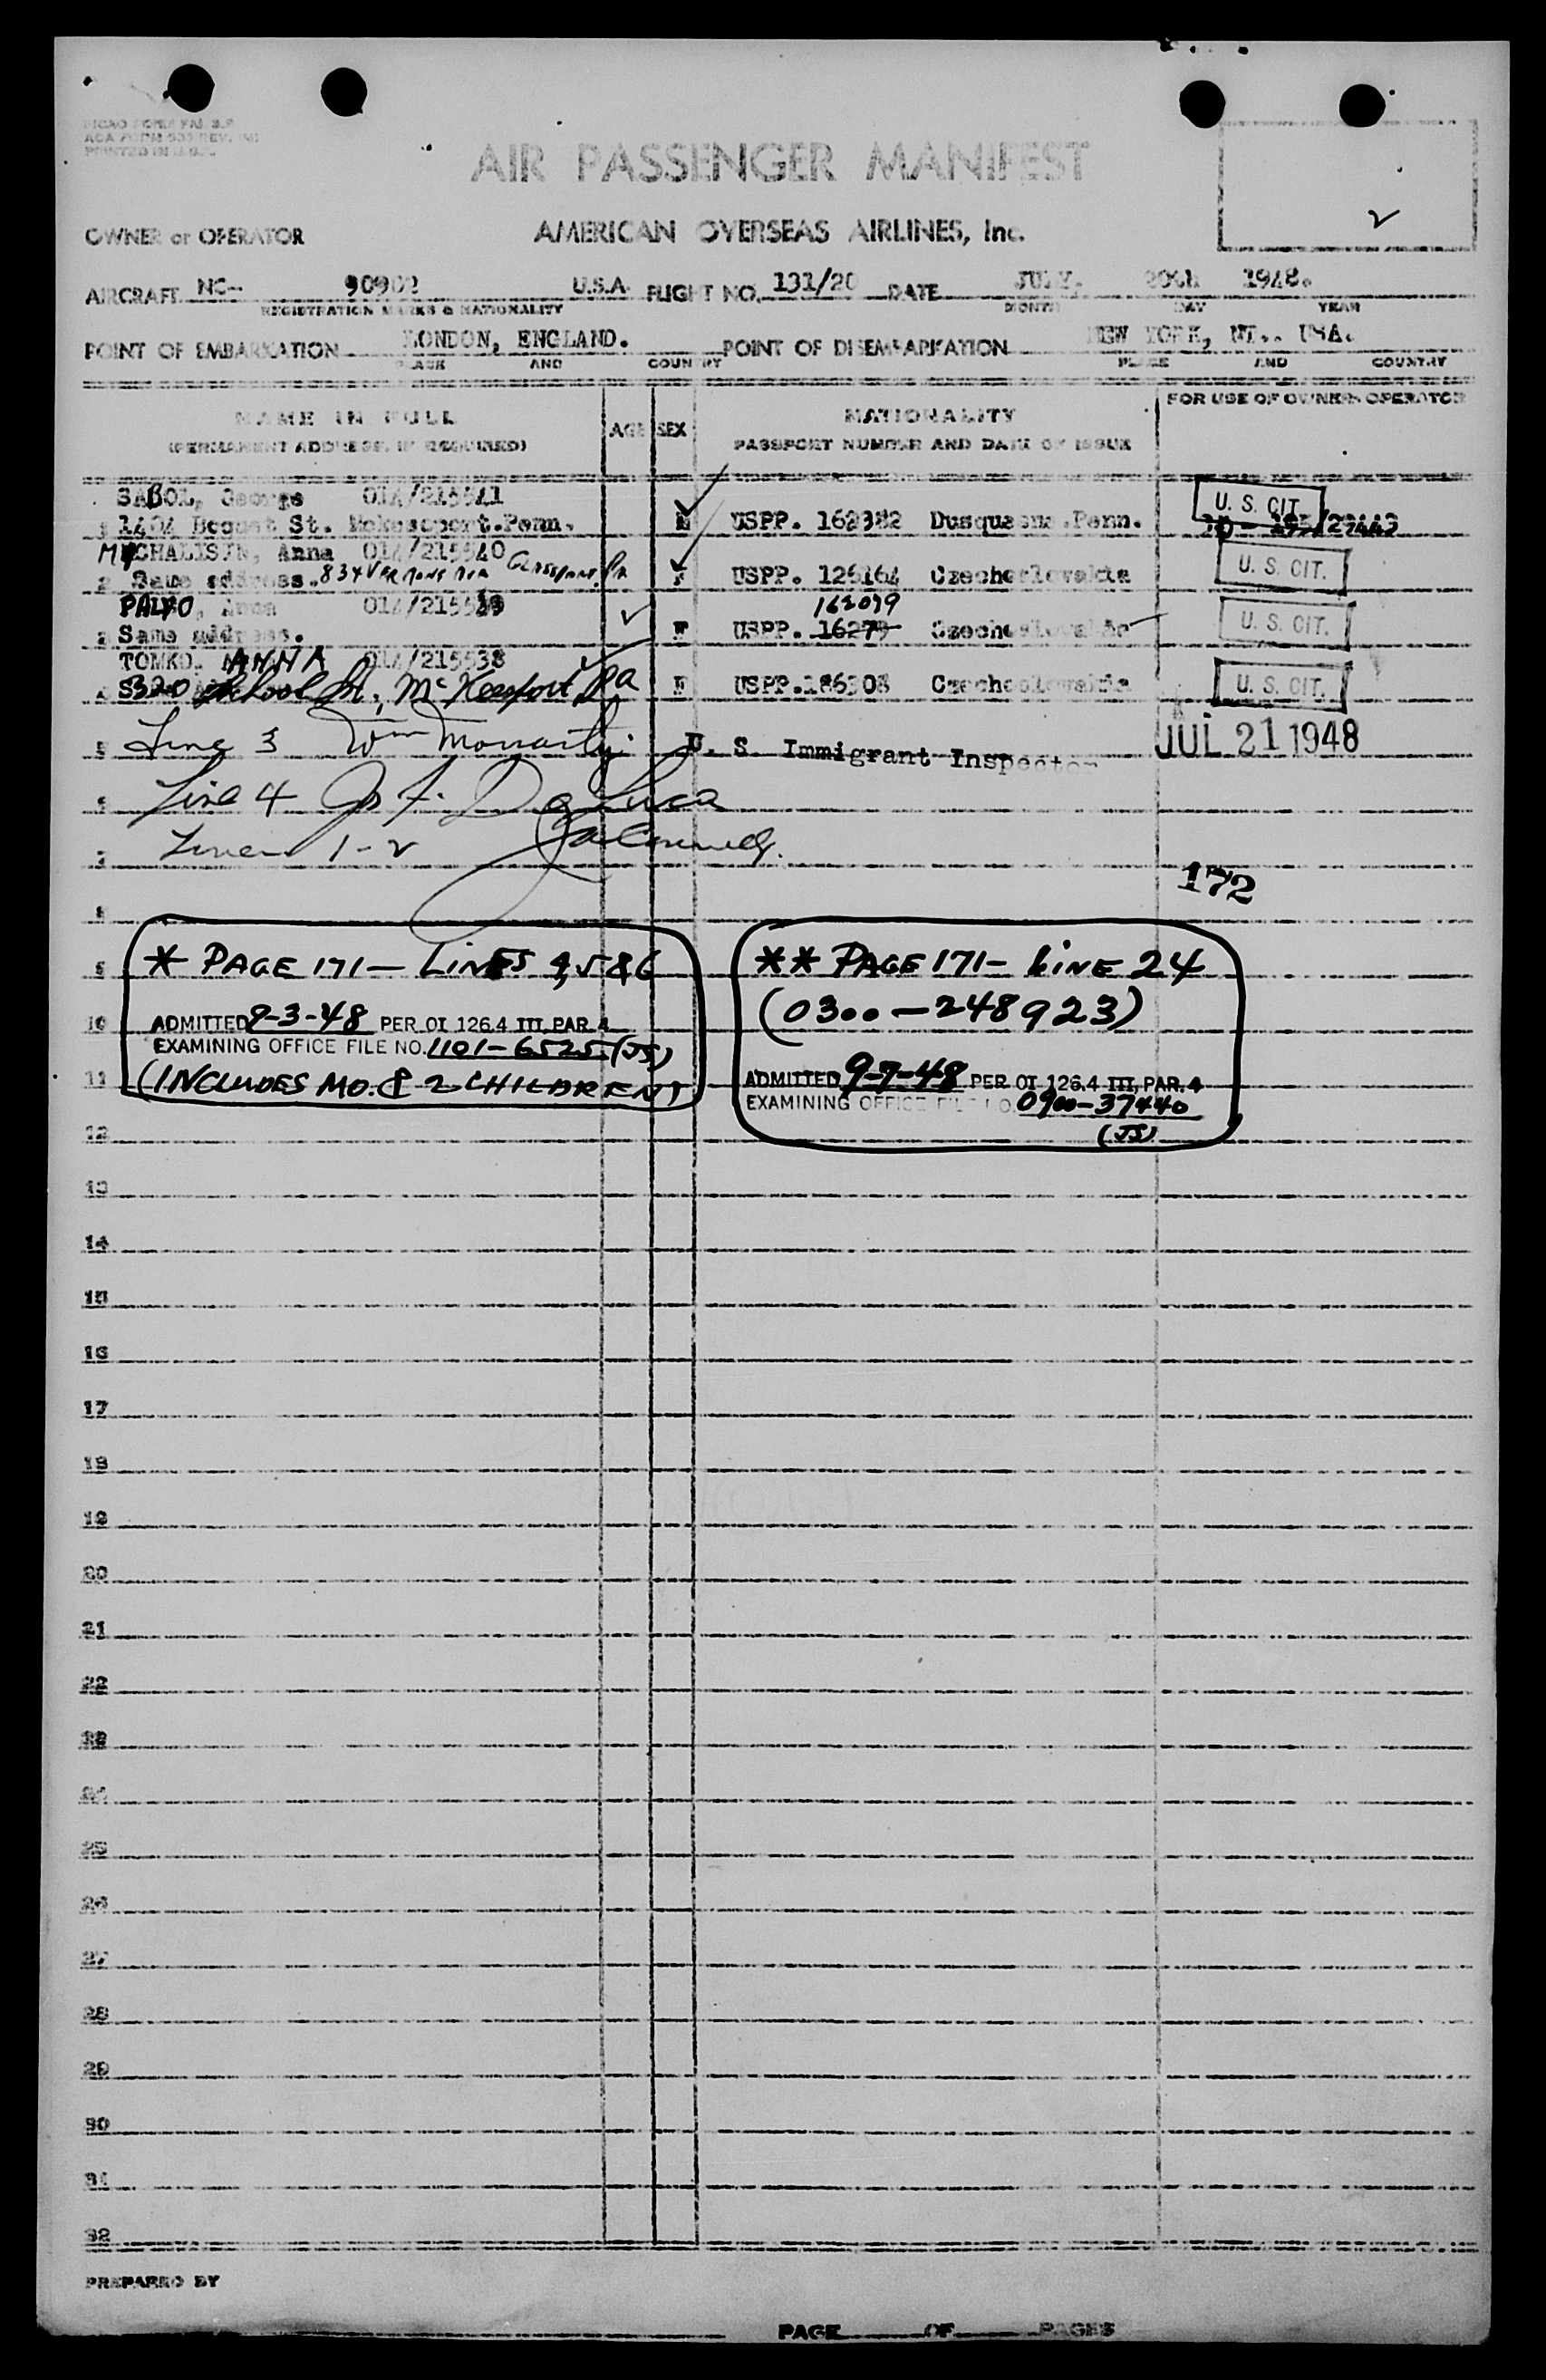 PICAO FORM
ACA FORM
PRINTED IN U.S.
AIR PASSENGER MANIFEST
OWNER or OPERATOR AMERICAN OVERSEAS AIRLINES, Inc.
AIRCRAFT NC- 90902 U.S.A. FLIGHT NO. 131/20 DATE JULY. 20th 1948.
REGISTRATION MARKS & NATIONALITY MONTH DAY YEAR
POINT OF EMBARKATION LONDON, ENGLAND. POINT OF DISEMBARKATION NEW YORK, NY.. USA.
PLACE AND COUNTRY PLACE AND COUNTRY
FOR USE OF OWNER OR OPERATOR
NAME IN FULL AGE SEX NATIONALITY
(PERMANENT ADDRESS, IF REQUIRED) PASSPORT NUMBER AND DATE OF ISSUE
SABOL, George 014/215541 U. S. CIT.
1 1404 Bosquet St. Mckeesport.Penn. M USPP. 162382 Dusquesne.Penn.
MYCHALISIN, Anna 014/215540
2 Same address. 834 VERMONT AVE GLASSPORT, PA F USPP. 126164 Czechoslovakia U. S. CIT.
PALKO, Anna 014/215539 162079
3 Same address. F USPP. 16279 Czechoslovakia U. S. CIT.
TOMKO. ANNA 014/215538
4 320 School St., McKeesport Pa F USPP.186308 Czechoslovakia U. S. CIT.
5 Line 3 Wm Moriarty U. S. Immigrant Inspector JUL 21 1948
6 Line 4 Jos F. DeLuca
7 Lines 1-2
172
8
9 * PAGE 171 — LINES 4,5 & 6 ** PAGE 171 - LINE 24
(0300 — 248923)
10 ADMITTED 9-3-48 PER OI 126.4 III, PAR. 4
EXAMINING OFFICE FILE NO. 1101-6525 (JS)
11 (INCLUDES MO. & 2 CHILDREN) ADMITTED 9-7-48 PER OI 126.4 III, PAR. 4
EXAMINING OFFICE FILE NO. 0900-37440
12 (JS)
13
14
15
16
17
18
19
20
21
22
23
24
25
26
27
28
29
30
31
32
PREPARED BY
PAGE OF PAGES